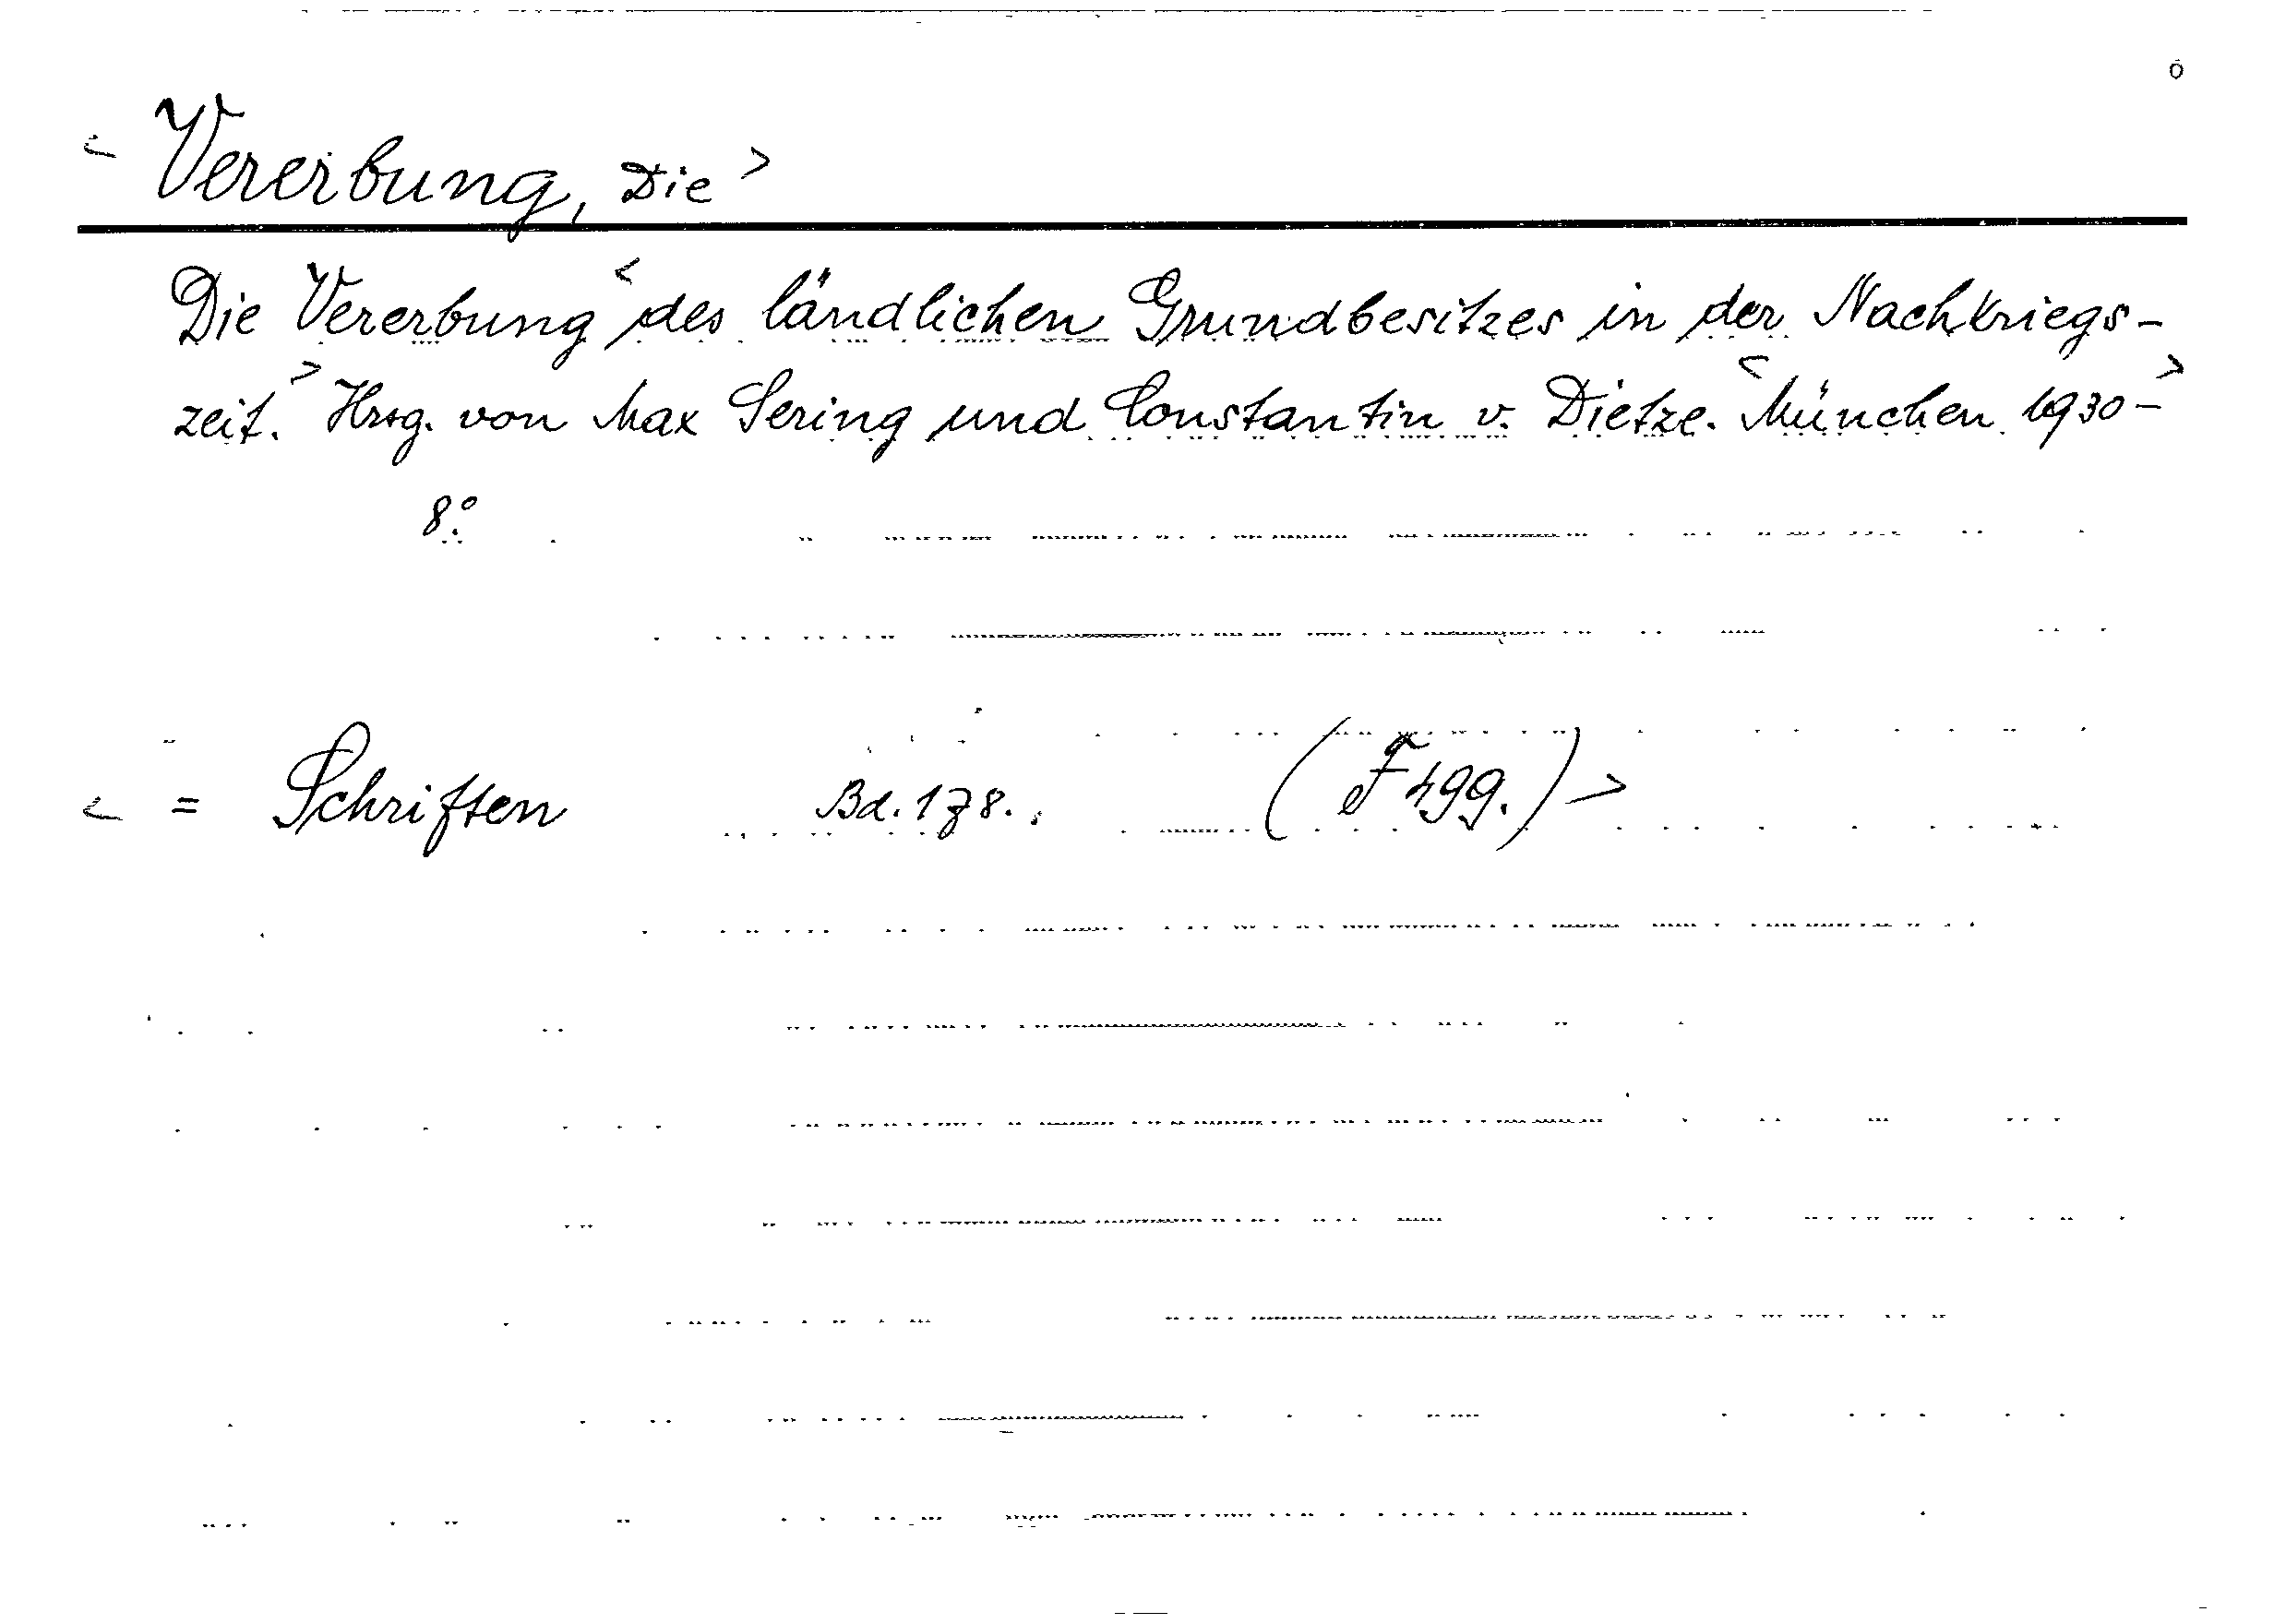 ō
< Vererbung, Die >
Die Vererbung < des ländlichen Grundbesitzes in der Nachkriegs-
zeit. > Hrsg. von Max Sering und Constantin v. Dietze. < München 1930- >
8°.
< = Schriften Bd. 178. (F 499.) >